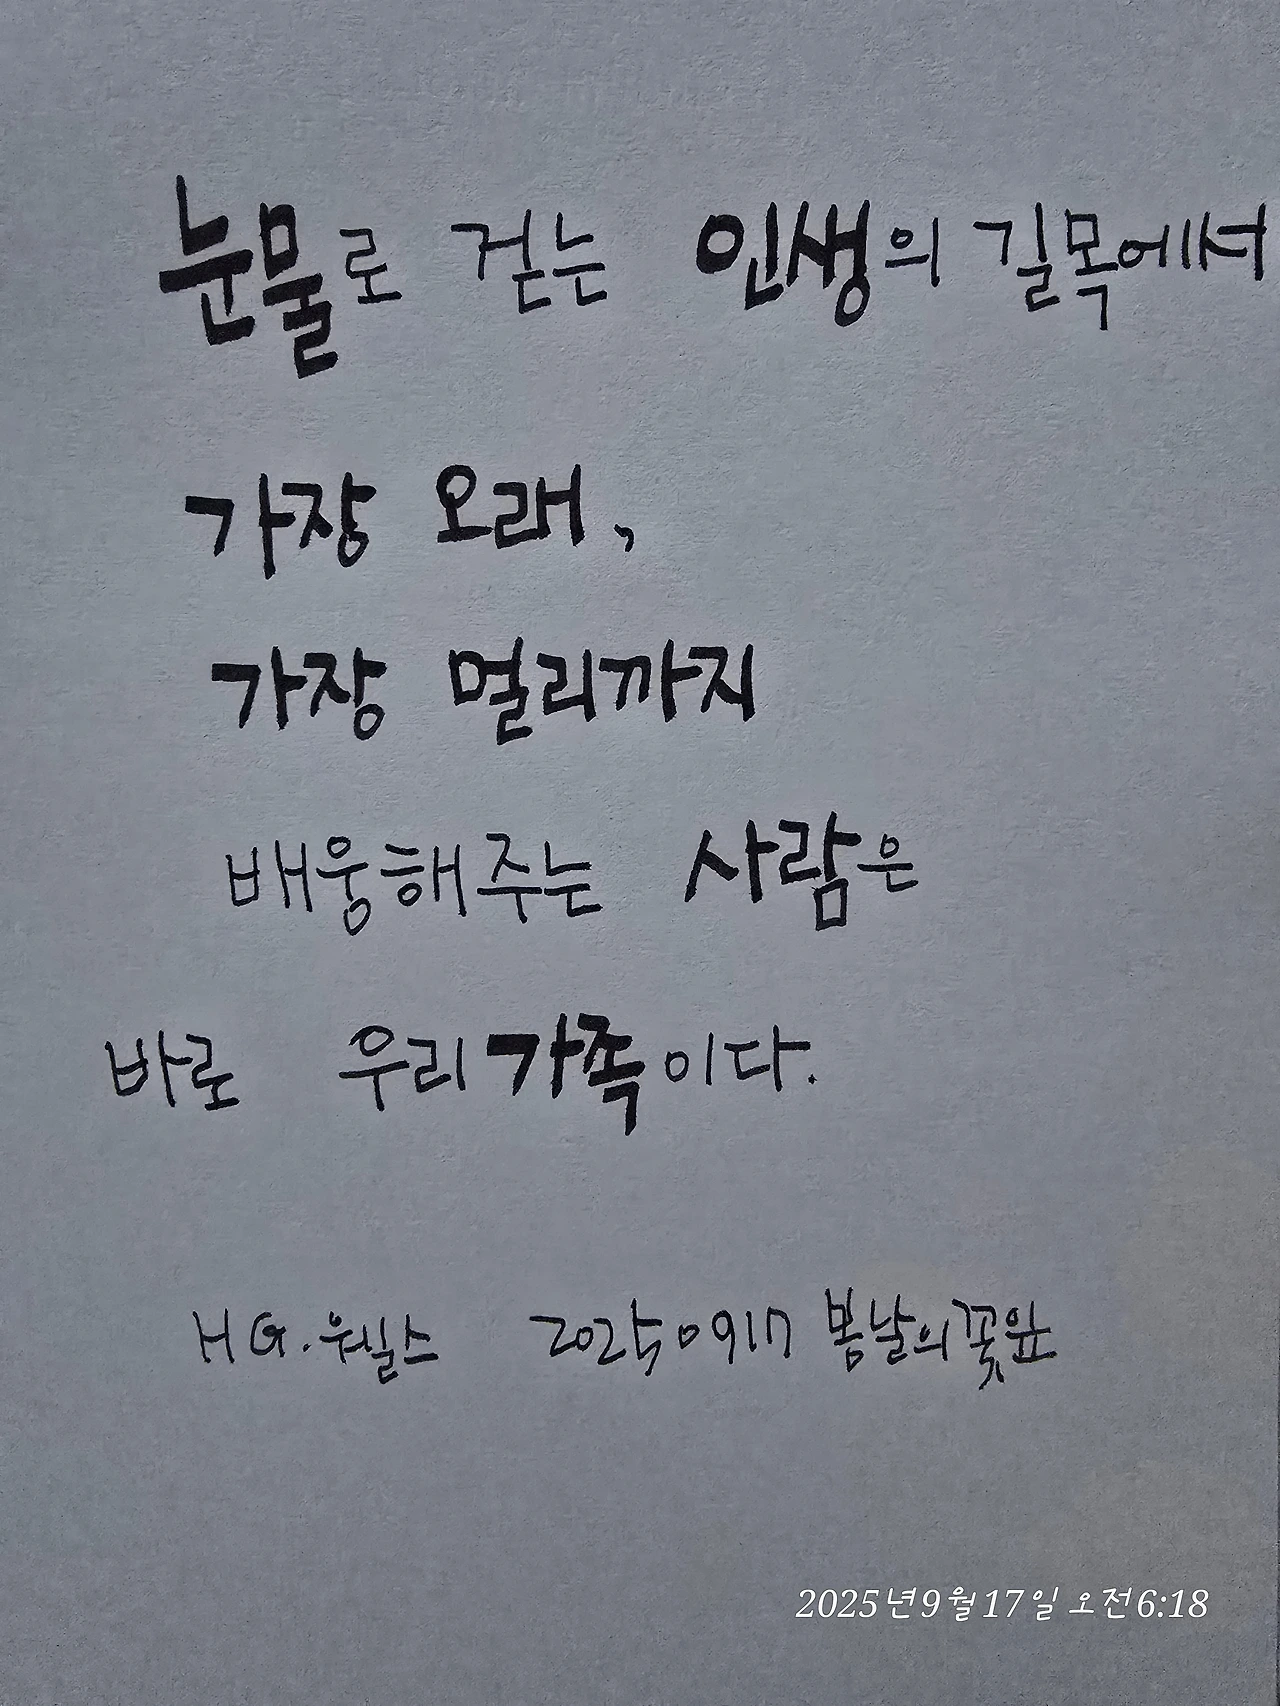 눈물로 걷는 인생의 길목에서
가장 오래,
가장 멀리까지
배웅해주는 사람은
바로 우리 가족이다.
HG.워실스 20250917 봄날의꽃잎
2025년 9월 17일 오전 6:18